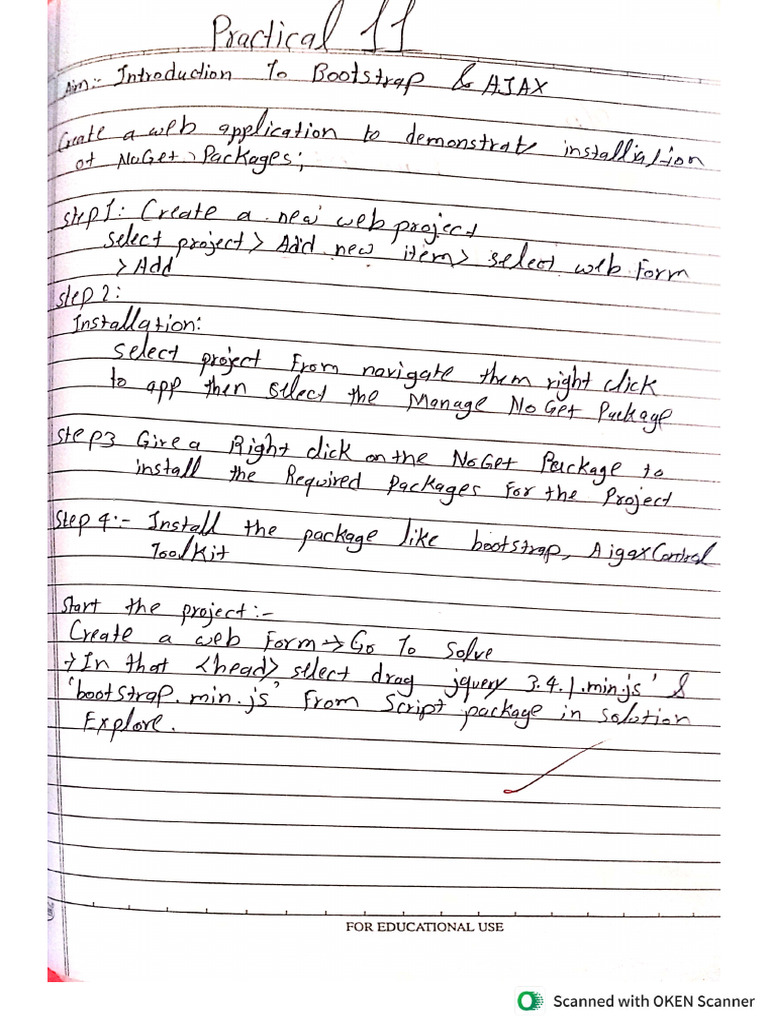 Practical 11
Aim:- Introduction To Bootstrap & AJAX
Create a web application to demonstrate installation
of NoGet > Packages;
Step 1: Create a new web project
select project > Add new item > select web form
> Add
Step 2:
Installation:
Select project From navigate them right click
to app then select the Manage NoGet Package
Step 3 Give a Right click on the NoGet Package to
install the Required Packages For the Project
Step 4:- Install the package like bootstrap, AigaxControl
ToolKit
Start the project:-
Create a web Form → Go To Solve
→ In that <head> select drag jquery 3.4.1.min.js' &
'bootstrap.min.js' From Script package in solution
Explore.
FOR EDUCATIONAL USE
Scanned with OKEN Scanner